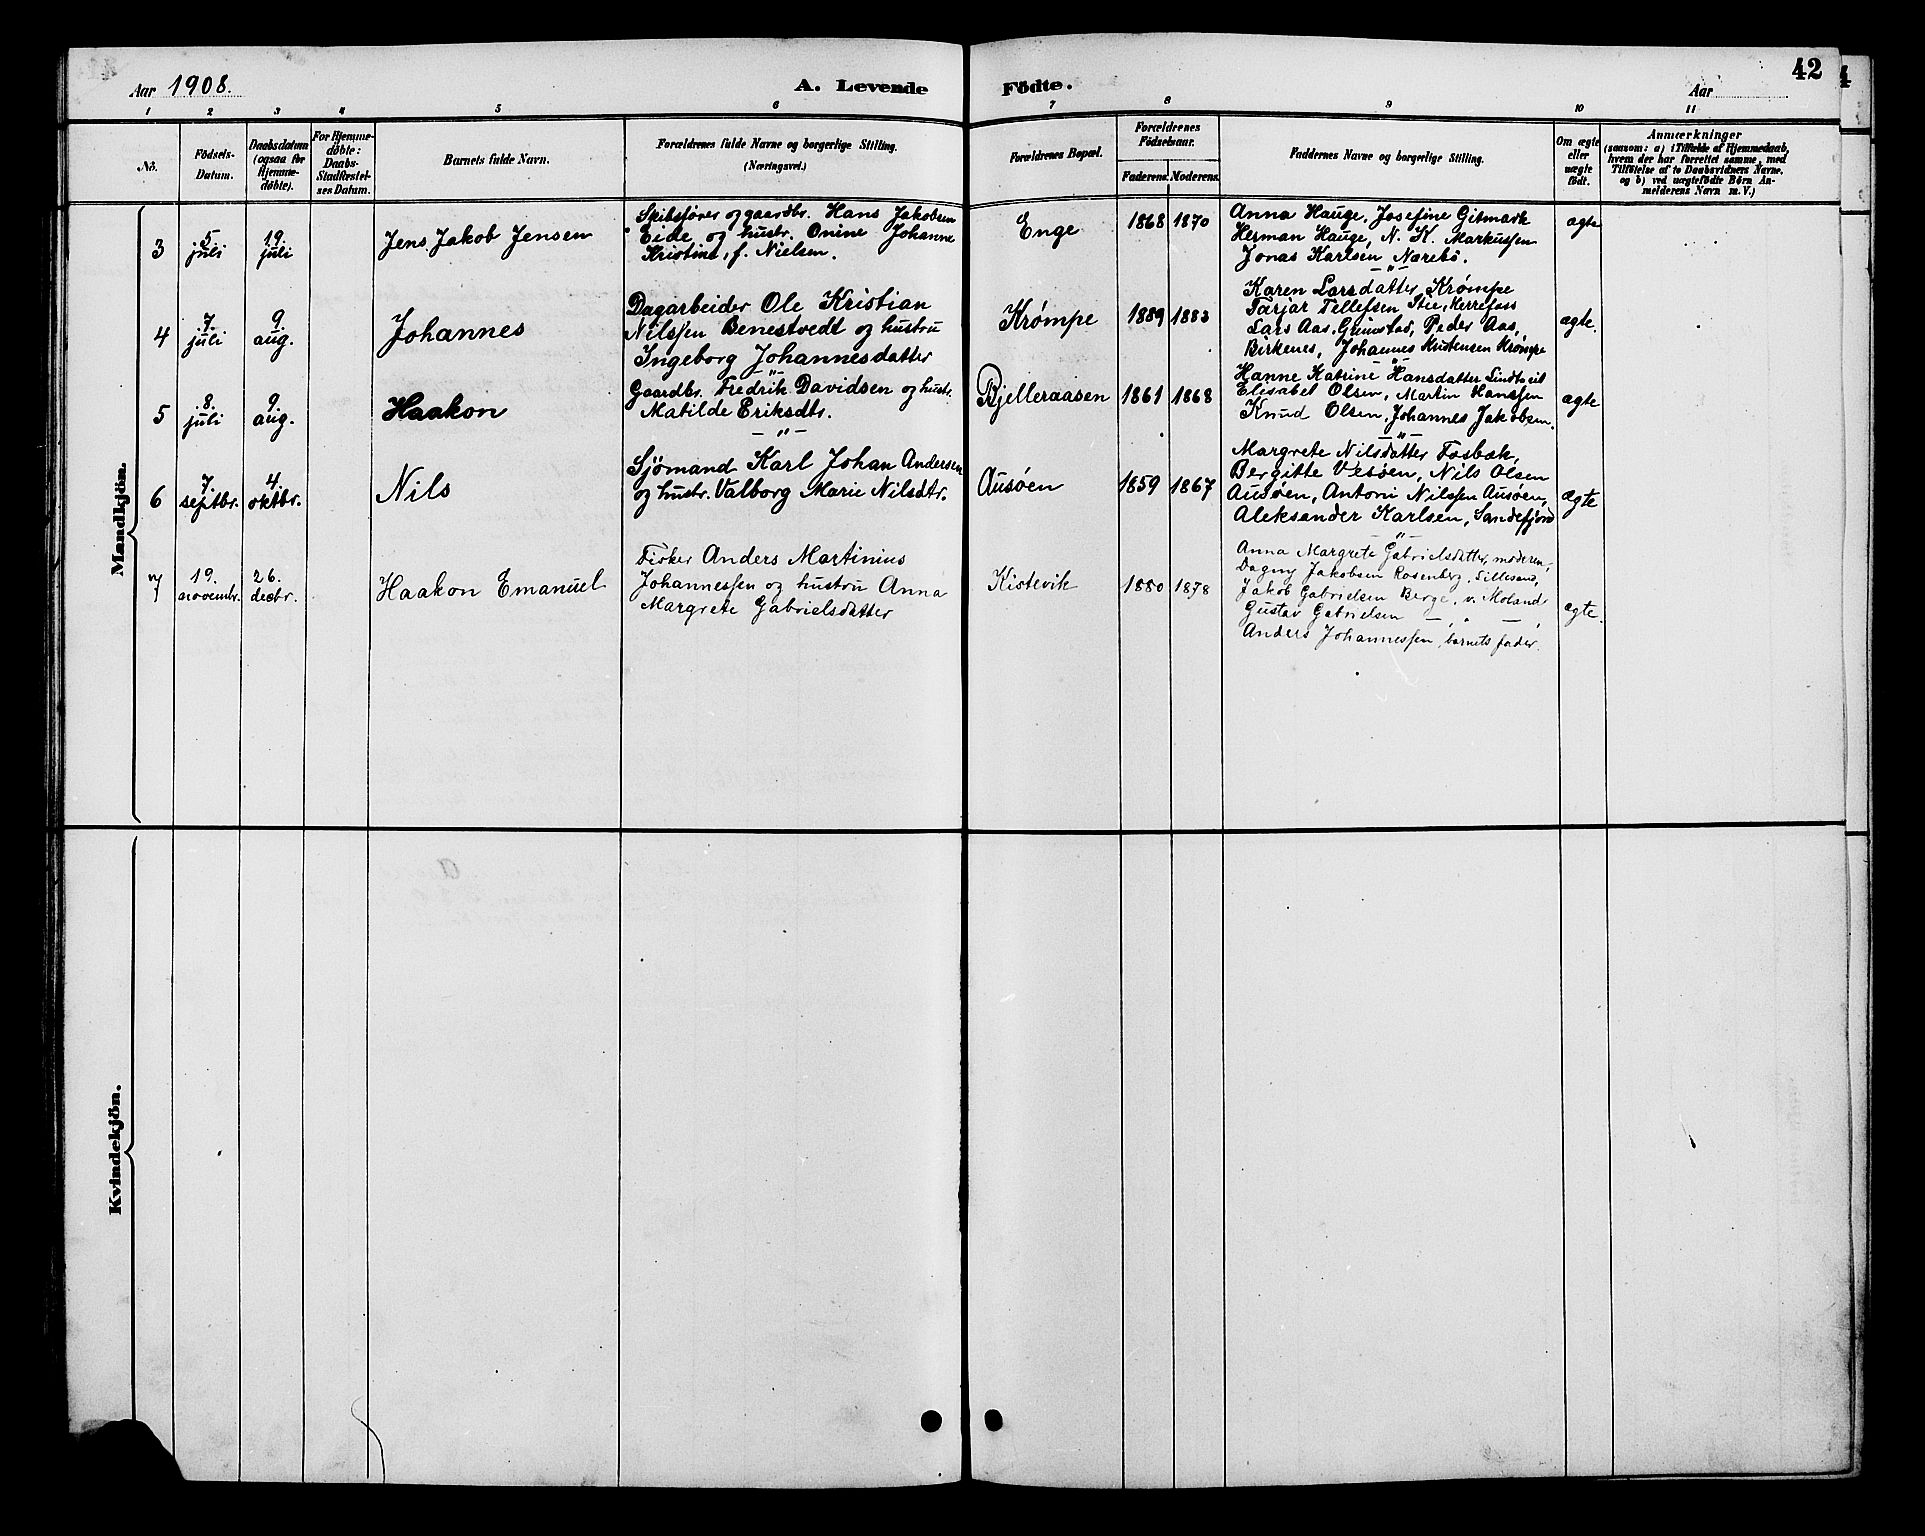 Aar 1908.
A. Levende Födte.
Aar
42
1 2 3 4 5 6 7 8 9 10 11
Nö.
Födsels-
Datum.
Daabsdatum
(ogsaa for
Hjemme-
döbte).
For Hjemme-
döbte:
Daabs-
Stadfestel-
ses Datum.
Barnets fulde Navn.
Forældrenes fulde Navne og borgerlige Stilling.
(Næringsvei.)
Forældrenes Bopæl.
Forældrenes
Födselsaar.
Faderens. Moderens.
Faddernes Navne og borgerlig Stilling.
Om ægte
eller
uægte
födt.
Anmærkninger
(saasom: a) i Tilfælde af Hjemmedaab,
hvem der har forrettet samme, med
Tilföielse af to Daabsvidners Navne,
og b) ved uægtefödte Börn An-
melderens Navn m. V.)
Mandkjön.
3
5
juli
19.
juli
Jens Jakob Jensen
Skibsfører og gaardbr. Hans Jakobsen
Eide og hustr. Onine Johanne
Kristine, f. Nielsen.
Enge
1868 1870
Anna Hauge, Josefine Gitmark
Herman Hauge, N. K. Markussen
Jonas Karlsen Nærebö.
ægte
4
7
juli
9
aug.
Johannes
Dagarbeider Ole Kristian
Nilssen Benestvedt og hustru
Ingeborg Johannesdatter
Krømpe
1889 1883
Karen Larsdatter, Krømpe
Tarjar Tellefsen Stie, Herrefoss
Lars Aas, Grimstad, Peder Aas,
Birkenes, Johannes Kristensen Krømpe
ægte.
5
8.
juli
9
aug.
Haakon
Gaardbr. Fredrik Davidsen og hustr.
Matilde Eriksdtr.
Bjelleraasen
1861 1868
Hanne Katrine Hansdatter
Elisabet Olsen, Martin Hanssen
Knud Olsen, Johannes Jakobsen.
ægte
6
7.
septbr.
4.
oktbr.
Nils
Sjömand Karl Johan Andersen
og hustr. Valborg Marie Nilsdtr.
Ausöen
1859 1867
Margrete Nilsdatter Fosbæk,
Bergitte Vesöen, Nils Olsen
Ausöen, Antoni Nilssen Ausöen,
Aleksander Karlsen, Sandefjord
ægte
7
19.
novembr.
26.
decbr.
Haakon Emanuel
Fisker Anders Martinius
Johannessen og hustru Anna
Margrete Gabrielsdatter
Kistevik
1880 1878
Anna Margrete Gabrielsdatter, moderen,
Dagny Jakobsen Rosenberg, Lillesand,
Jakob Gabrielsen Berge, v. Moland
Gustav Gabrielsen — " —,
Anders Johannessen, barnets fader.
ægte.
Kvindekjön.